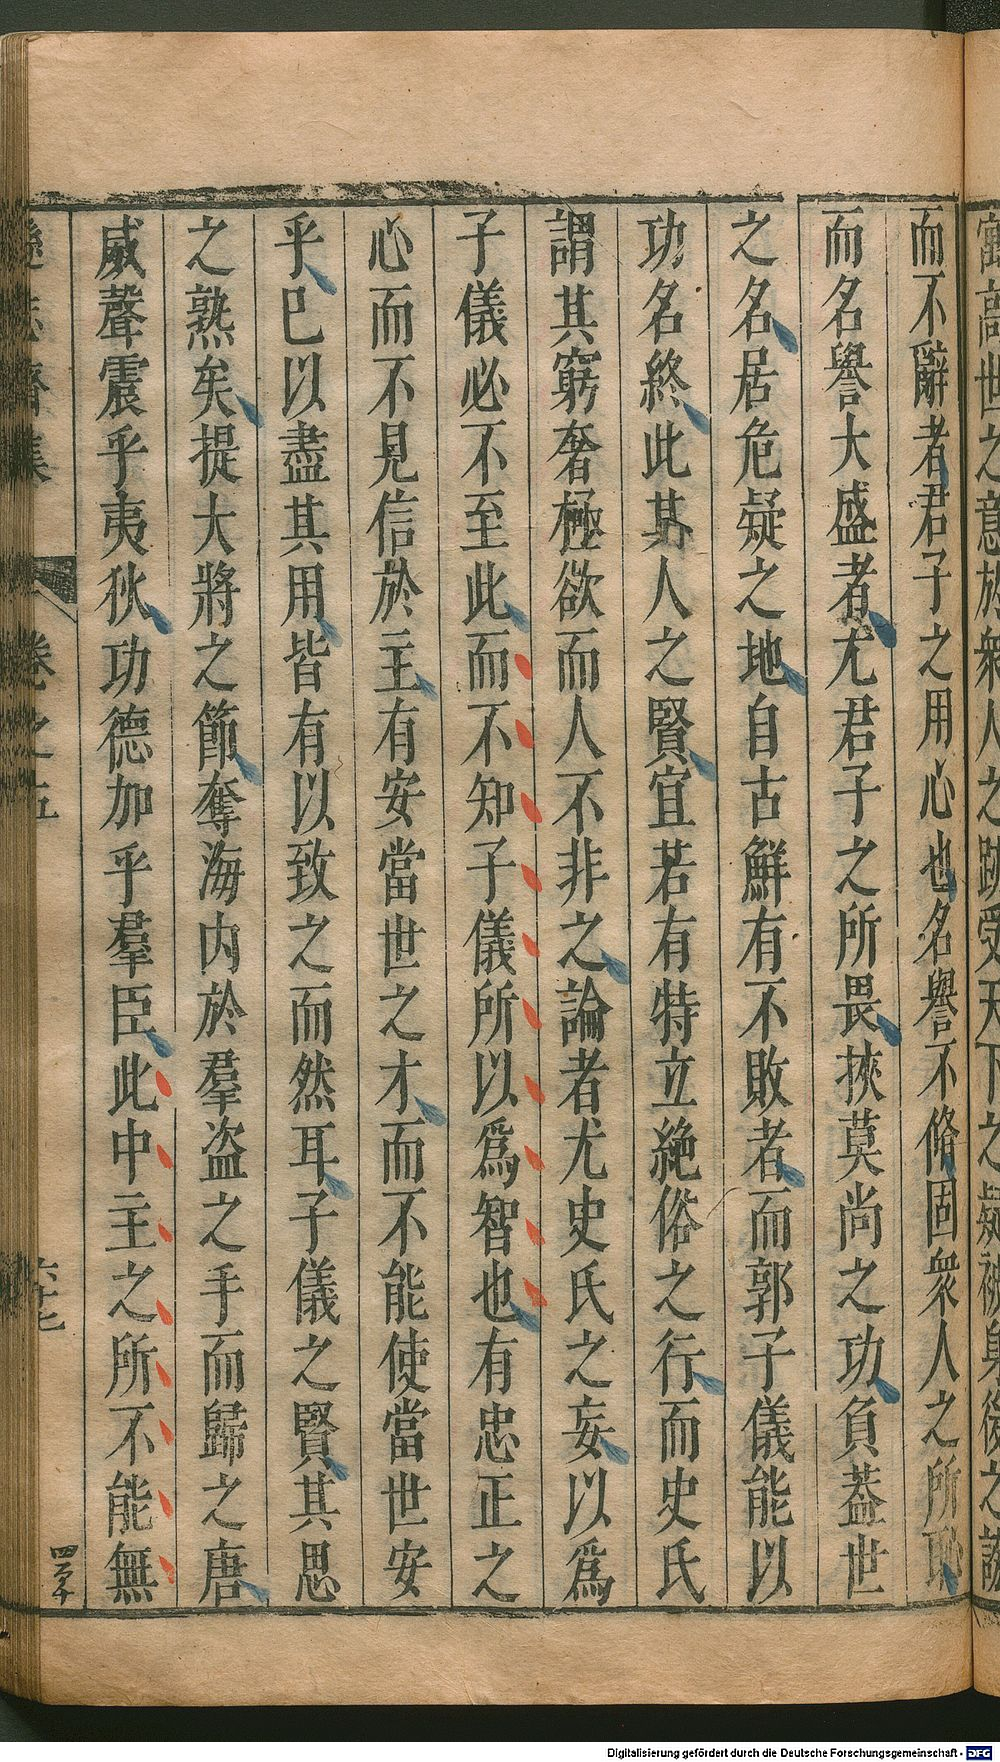 高世之意於衆人之跡受天下之疑被身後之
而不辭者君子之用心也名譽不脩固衆人之所恥
而名譽大盛者尤君子之所畏挾莫尚之功負蓋世
之名居危疑之地自古鮮有不敗者而郭子儀能以
功名終此其人之賢宜若有特立絶俗之行而史氏
謂其窮奢極欲而人不非之論者尤史氏之妄以爲
子儀必不至此而不知子儀所以爲智也有忠正之
心而不見信於主有安當世之才而不能使當世安
乎巳以盡其用皆有以致之而然耳子儀之賢其思
之熟矣提大將之節奪海内於羣盗之手而歸之唐
威聲震乎夷狄功德加乎羣臣此中主之所不能無
遜志齋集
卷之五
六十七
四百千
Digitalisierung gefördert durch die Deutsche Forschungsgemeinschaft - DFG